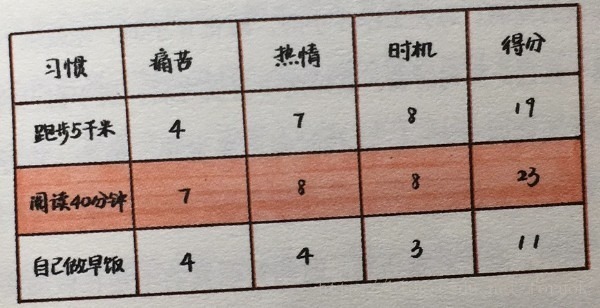 习惯 痛苦 热情 时机 得分
跑步5千米 4 7 8 19
阅读40分钟 7 8 8 23
自己做早饭 4 4 3 11